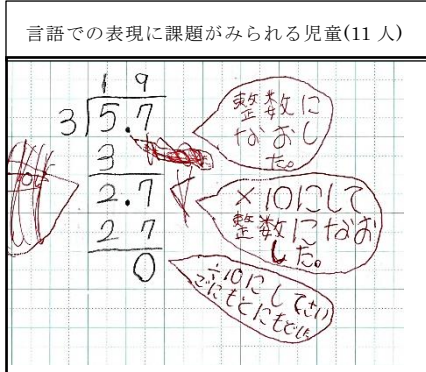 言語での表現に課題がみられる児童(11 人)
1 9
3 5.7
3
2.7
2 7
0
整数に
なおし
た。
×10にして
整数になお
した。
÷10にしてさい
ごにもとにもどした